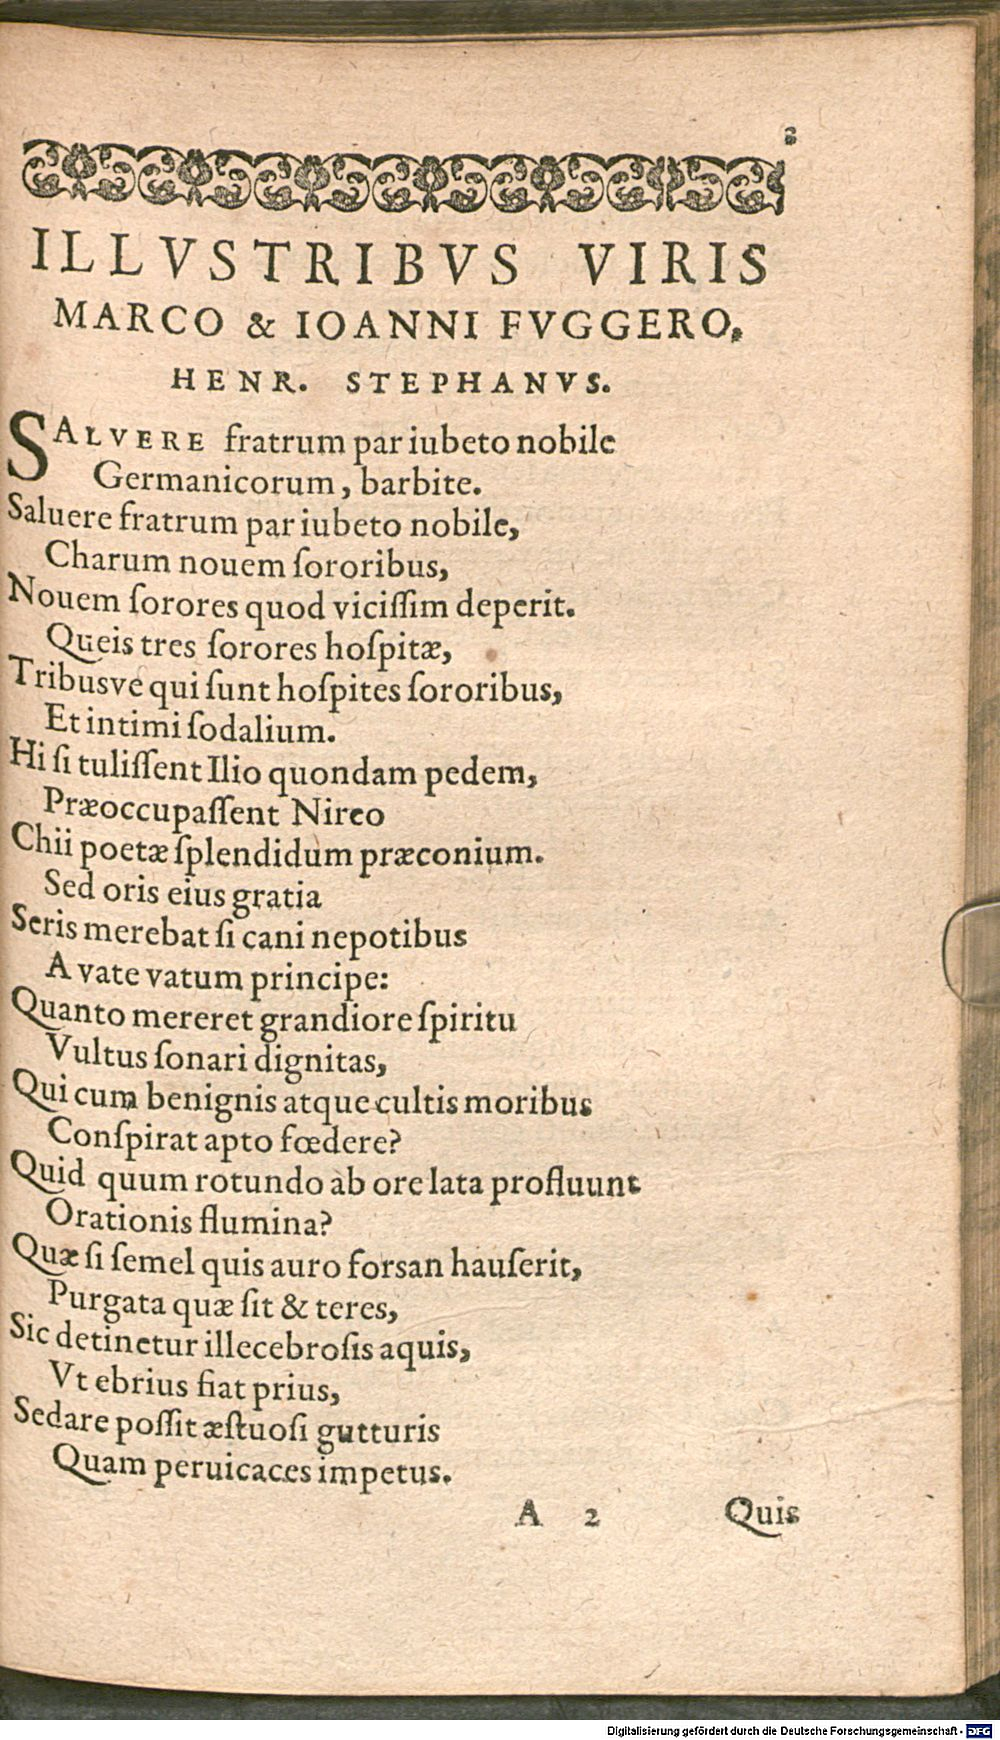 2
ILLVSTRIBVS VIRIS
MARCO & IOANNI FVGGERO,
HENR. STEPHANVS.
SALVERE fratrum par iubeto nobile
Germanicorum, barbite.
Saluere fratrum par iubeto nobile,
Charum nouem ſororibus,
Nouem ſorores quod viciſſim deperit.
Queis tres ſorores hoſpitæ,
Tribusve qui ſunt hoſpites ſororibus,
Et intimi ſodalium.
Hi ſi tuliſſent Ilio quondam pedem,
Præoccupaſſent Nireo
Chii poetæ ſplendidum præconium.
Sed oris eius gratia
Seris merebat ſi cani nepotibus
A vate vatum principe:
Quanto mereret grandiore ſpiritu
Vultus ſonari dignitas,
Qui cum benignis atque cultis moribus
Conſpirat apto fœdere?
Quid quum rotundo ab ore lata profluunt
Orationis flumina?
Quæ ſi ſemel quis auro forsan hauſerit,
Purgata quæ ſit & teres,
Sic detinetur illecebroſis aquis,
Vt ebrius fiat prius,
Sedare poſſit æſtuoſi gutturis
Quam peruicaces impetus.
A 2 Quis
Digitalisierung gefördert durch die Deutsche Forschungsgemeinschaft - DFG